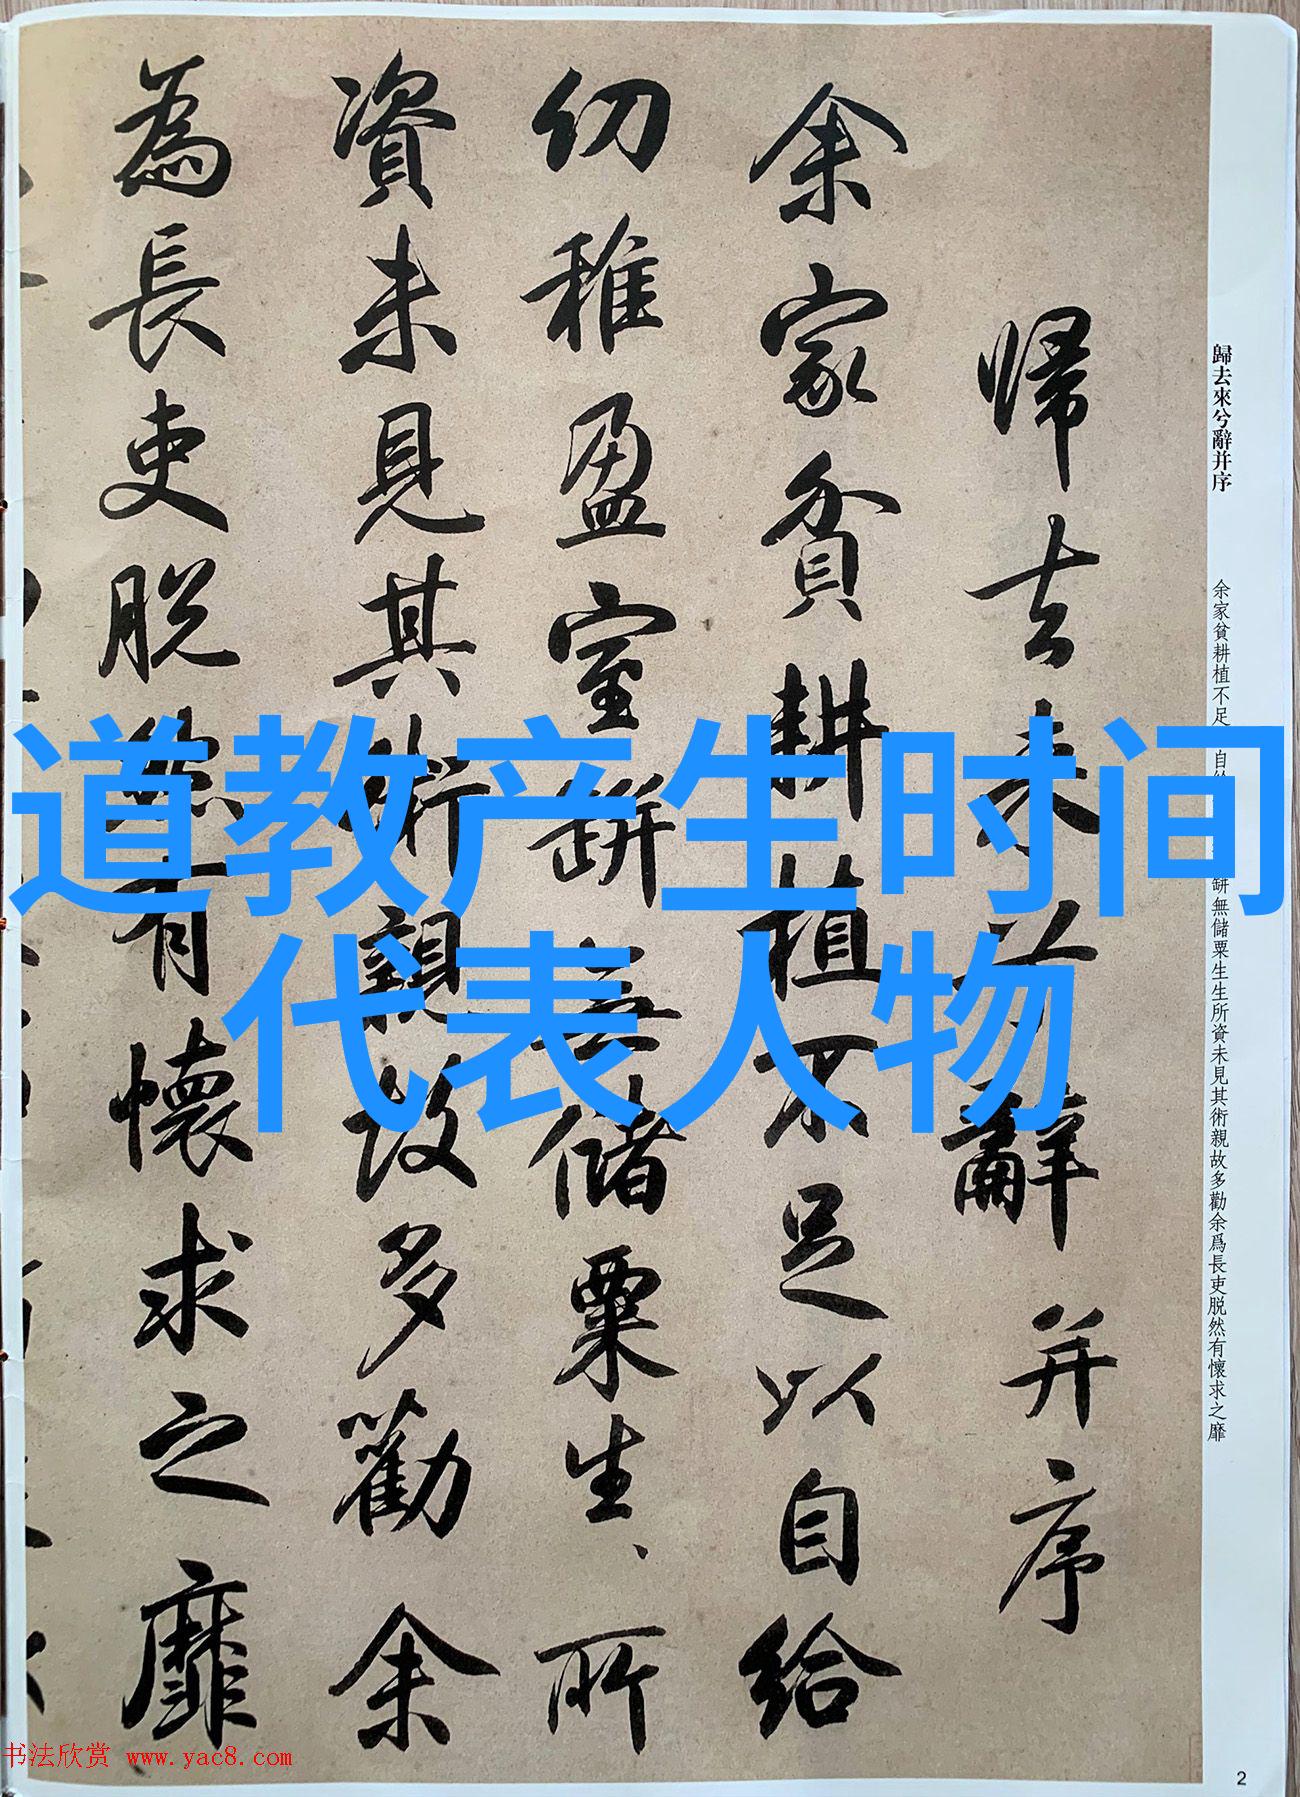 歸去來兮辭并序
余家貧耕植不足以自給
幼稚盈室缾無儲粟生、所
資未見其術親故多勸余
為長吏脱然有懷求之靡
道教产生时间
代表人物
歸去來兮辭并序
余家貧耕植不足
自給
缾無儲粟生生所資未見其術親故多勸余爲長吏脱然有懷求之靡
书法欣赏 www.yac8.com
2